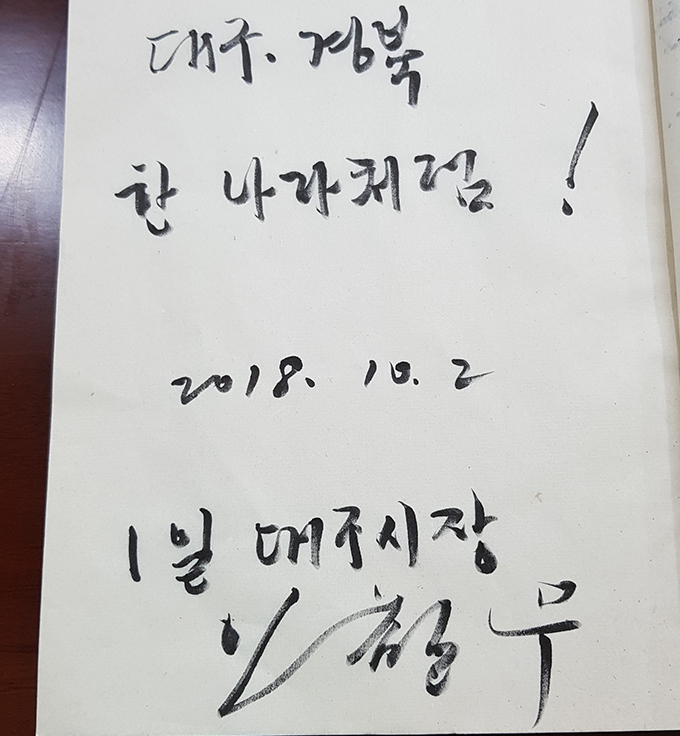 대구·경북
한 나라처럼!
2018. 10. 2
1일 대구시장
이철우